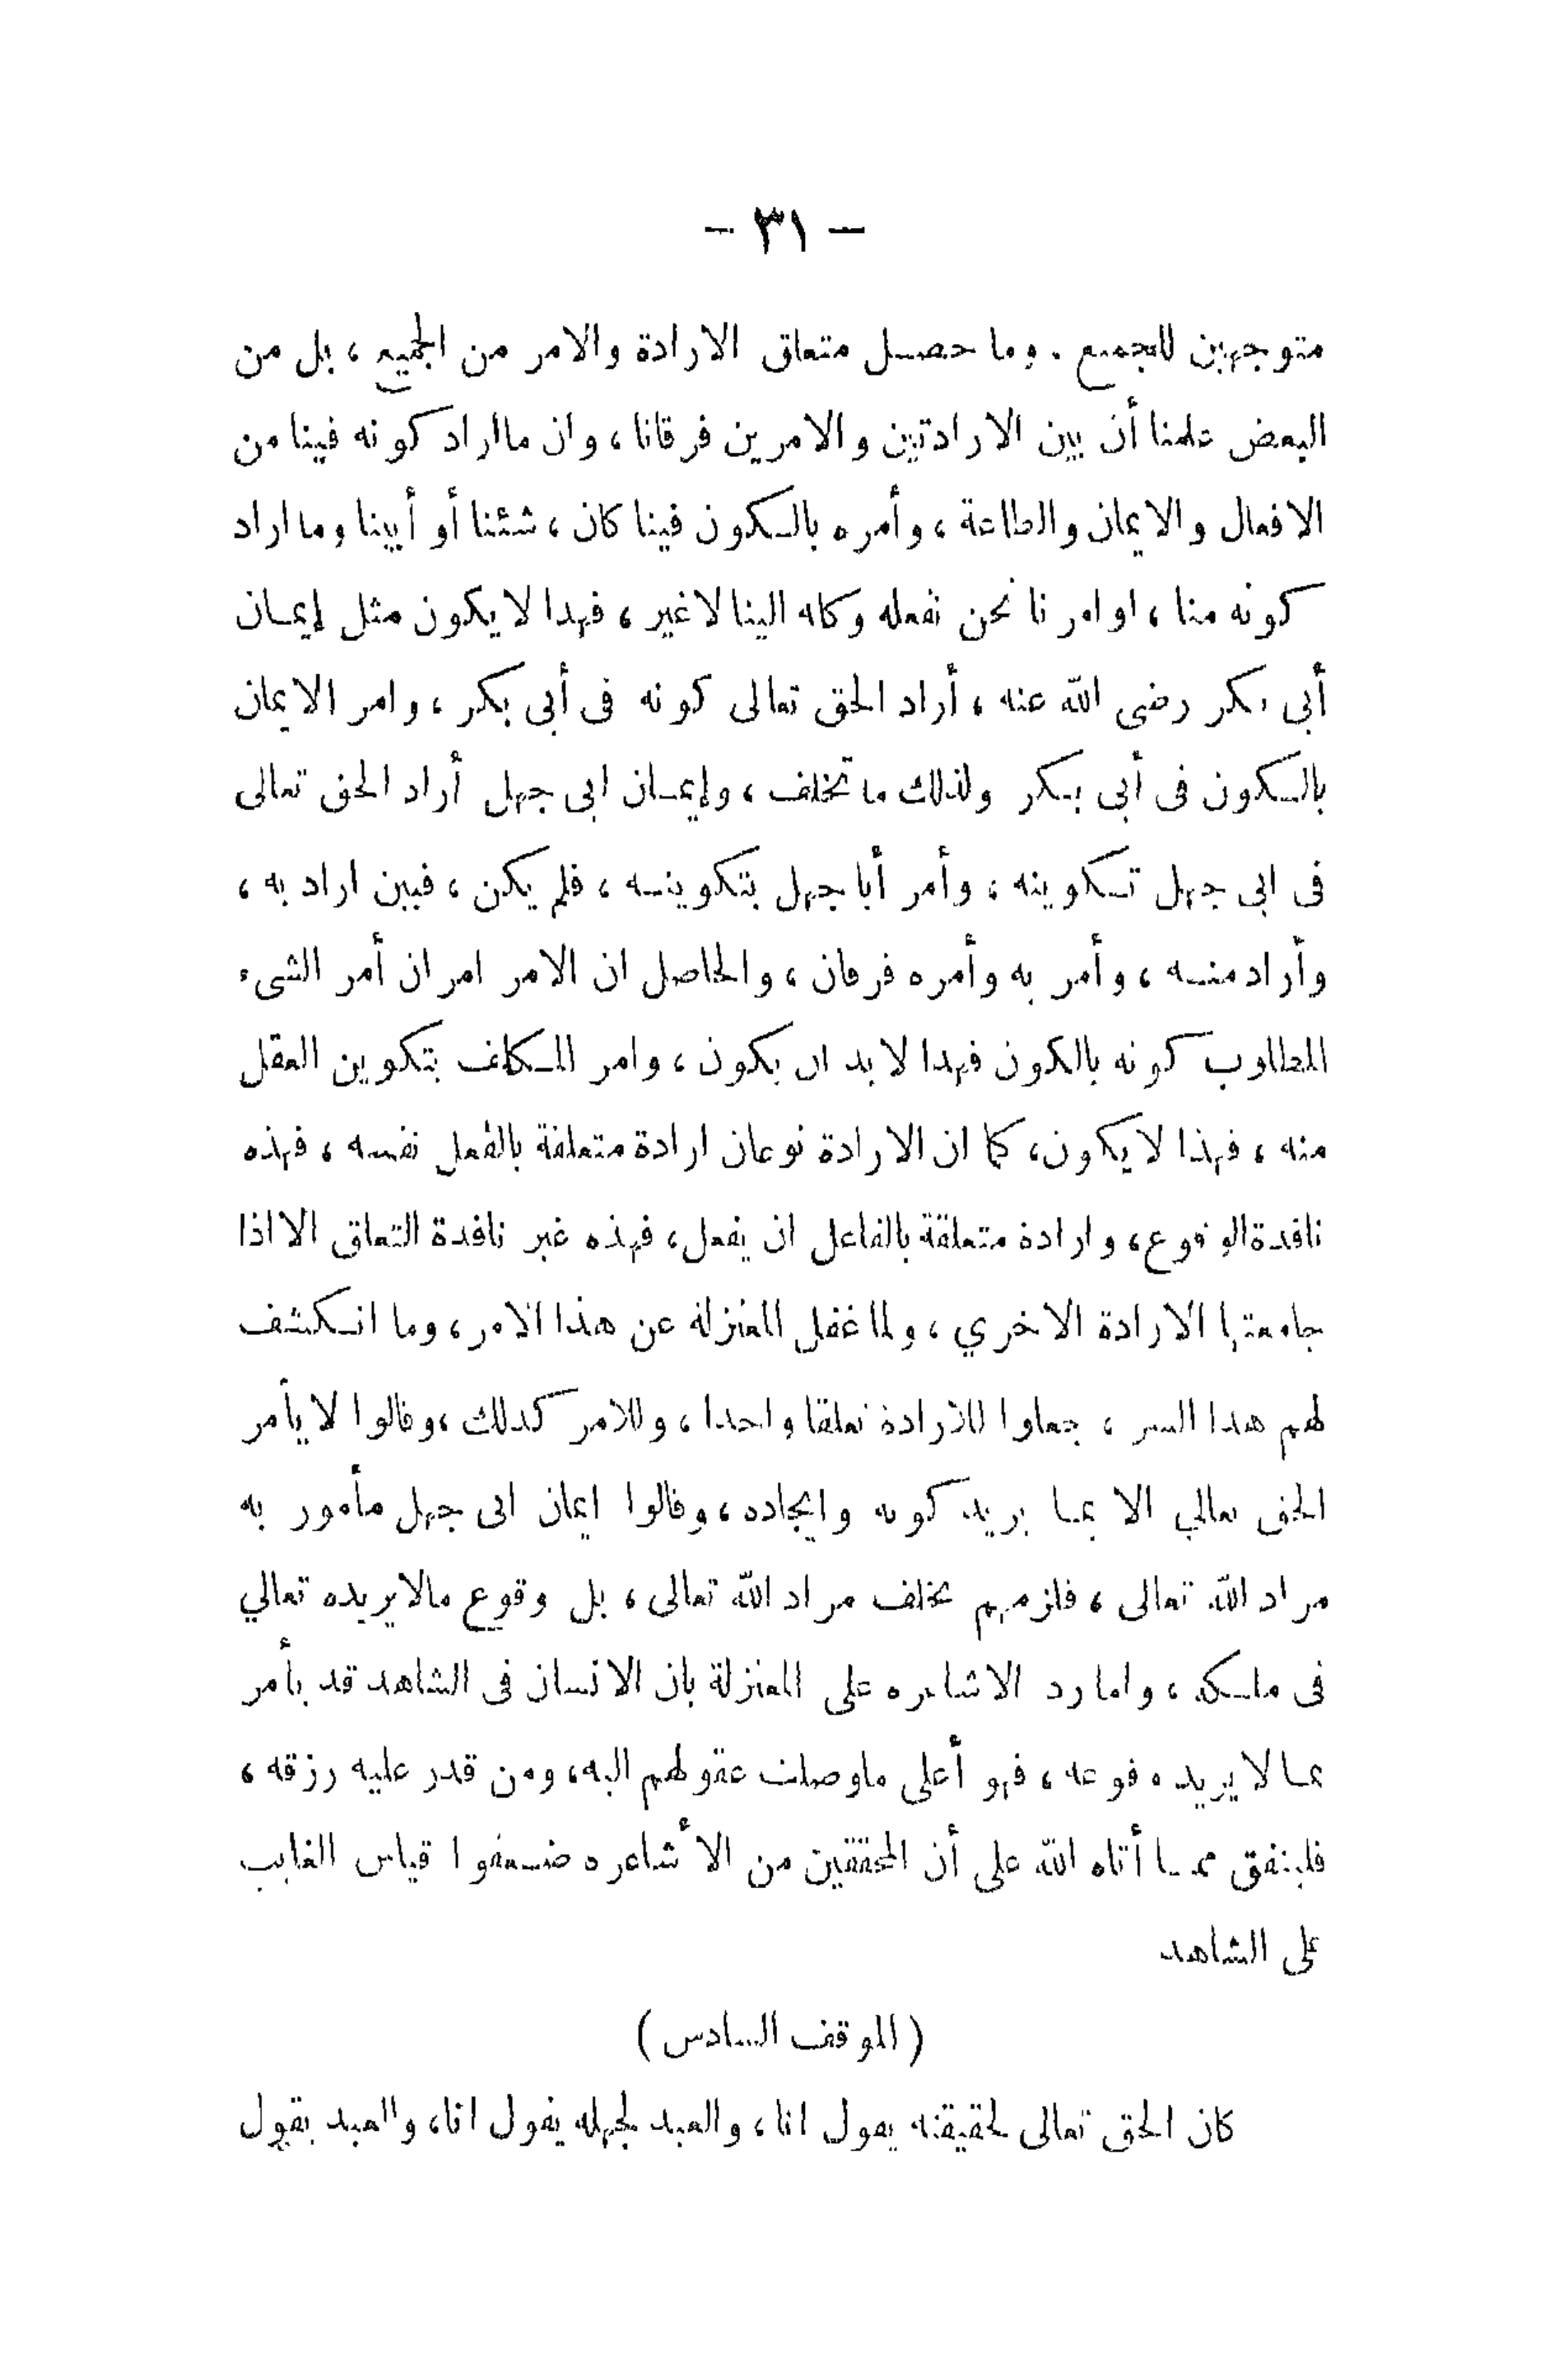 – ٣١ –
متوجهين للجميع . وما حصل متعلق الارادة والامر من الجميع ، بل من
البعض علمنا أن بين الارادتين والامرين فرقانا ، وان مااراد كونه فينا من
الافعال والايمان والطاعة ، وأمره بالكون فينا كان ، شئنا أو أبينا وما اراد
كونه منا ، اوامرنا نحن نفعله وكله الينا لاغير ، فهدا لا يكون مثل إيمان
أبى بكر رضى الله عنه ، أراد الحق تعالى كونه فى أبى بكر ، وامر الايمان
بالكون فى أبى بكر ولذلك ما تخلف ، وإيمان ابى جهل أراد الحق تعالى
فى ابى جهل تكوينه ، وأمر أبا جهل بتكوينه ، فلم يكن ، فبين اراد به ،
وأراد منه ، وأمر به وأمره فرقان ، والحاصل ان الامر امران أمر الشىء
المطلوب كونه بالكون فهدا لا بد ان يكون ، وامر المكلف بتكوين العقل
منه ، فهذا لا يكون، كما ان الارادة نوعان ارادة متعلقة بالفعل نفسه ، فهذه
نافدة الوقوع ، وارادة متعلقة بالفاعل ان يفعل، فهذه غير نافدة التعلق الا اذا
جامعتها الارادة الاخري ، ولما غفل المعتزلة عن هذا الامر، وما انكشف
لهم هدا السر ، جعلوا للارادة تعلقا واحدا ، وللامر كدلك ، وقالوا لا يأمر
الحق تعالي الا بما يريد كونه وايجاده ، وقالوا ايمان ابى جهل مأمور به
مراد الله تعالى ، فلزمهم تخلف مراد الله تعالى ، بل وقوع مالايريده تعالي
فى ملكه ، واما رد الاشاعره على المعتزلة بان الانسان فى الشاهد قد يأمر
بما لا يريد وقوعه ، فهو أعلى ماوصلت عقولهم اليه، ومن قدر عليه رزقه ،
فلينفق مما أتاه الله على أن المحققين من الأشاعره ضعفوا قياس الغايب
على الشاهد
( الموقف السادس )
كان الحق تعالى لحقيقته يقول انا ، والعبد لجهله يقول انا، والعبد يقول